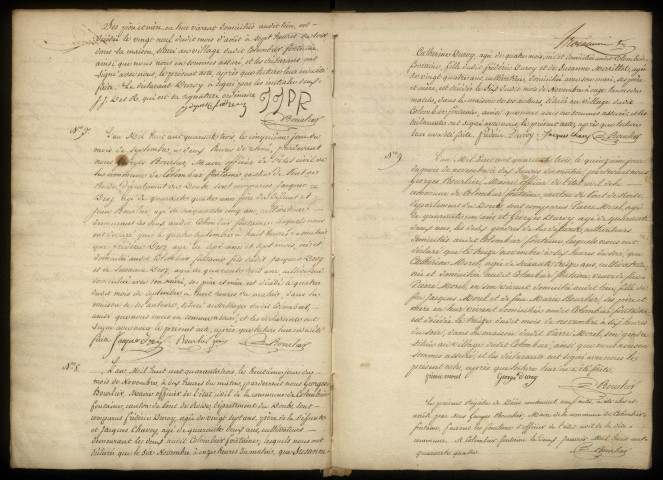 Ses père et mère, en leur vivant domiciliés audit lieu, est
décédée le vingt neuf dudit mois d'août à sept heures du soir
dans sa maison, située au village dudit Colombier fontaine,
ainsi que nous nous en sommes assuré, et les déclarants ont
signé avec nous, le présent acte, après que lecture leur en a été
faite. Le déclarant Duroy a signé par les initiales
J. J. D. R. qui est sa signature ordinaire
JJDR
Bourlier
N.° 7.
L'an Mil huit cent quarante trois, le cinquième jour du
mois de Septembre, à deux heures du soir, pardevant
nous Georges Bourlier, Maire officier de l'état civil de
la commune de Colombier fontaine, canton de Pont de
Roide, département du Doubs, sont comparus Jacques
Droz, âgé de quarante quatre ans, père du défunt, et
Jean Bourlier, âgé de cinquante cinq ans, cultivateurs
demeurant les deux audit Colombier fontaine, lesquels nous
ont déclaré que le quatre Septembre à huit heures du matin
que Frédéric Droz, âgé de sept mois, né et
domicilié audit Colombier fontaine fils dudit Jacques Droz
et de Suzanne Droz, âgée de quarante ans, cultivatrice
domiciliée avec son mari, ses père et mère, est décédé le quatre
dudit mois de Septembre à huit heures du matin, dans la
maison de ses auteurs, située au village dudit Colombier,
ainsi que nous nous en sommes assuré, et les déclarants ont
signé avec nous le présent acte, après que lecture leur en a été
faite.
Bourlier
N.° 8.
L'an Mil huit cent quarante trois, le huitième jour du
mois de Novembre, à dix heures du matin, pardevant nous Georges
Bourlier, Maire officier de l'état civil de la commune de Colombier
fontaine, canton de Pont de Roide, département du Doubs, sont
comparus Frédéric Duroy, âgé de vingt sept ans, père de la défunte
et Jacques Chavey, âgé de quarante deux ans, cultivateurs
demeurant les deux audit Colombier fontaine, lesquels nous ont
déclaré que le six Novembre à onze heures du matin, que Suzanne
Catherine Duroy, âgée de quatre mois, née et domiciliée audit Colombier
fontaine, fille dudit Frédéric Duroy et de Suzanne
de vingt quatre ans, cultivatrice, domiciliée avec son mari, ses père
et mère, est décédée le six dudit mois de Novembre à onze heures du
matin, dans la maison de ses auteurs, située au village dudit
Colombier fontaine, ainsi que nous nous en sommes assuré, et les
déclarants ont signé avec nous, le présent acte, après que lecture
leur en a été faite. Frédéric Duroy Jacques Chavey Bourlier
N.° 9.
L'an Mil huit cent quarante trois le quinzième jour
du mois de novembre à dix heures du matin, pardevant nous
Georges Bourlier, Maire officier de l'état civil de la
commune de Colombier fontaine, canton de Pont de Roide,
département du Doubs, sont comparus Pierre Morel, âgé
de quarante ans et Georges Duroy âgé de quarante
ans, les deux gendres de la défunte, cultivateurs
domiciliés audit Colombier fontaine lesquels nous ont
déclaré que le treize novembre à dix heures du soir, que
Catherine Morel, âgée de soixante treize ans, cultivatrice,
née et domiciliée audit Colombier fontaine, veuve de feu
Pierre Morel, en son vivant domicilié audit lieu, fille de
feu Jacques Morel et de feue Marie Bourlier, ses père et
mère en leur vivant domiciliés audit Colombier fontaine,
est décédée le treize dudit mois de novembre à dix heures
du soir, dans la maison dudit Pierre Morel, son gendre
située au village dudit Colombier, ainsi que nous nous en
sommes assuré, et les déclarants ont signé avec nous le
présent acte, après que lecture leur en a été faite.
pierre morel Georges Duroy
Bourlier
Le présent registre de Décès contenant neuf actes, a été clos et
arrêté par nous Georges Bourlier, Maire de la commune de Colombier
fontaine, faisant les fonctions d'officier de l'état civil de la dite
commune. A Colombier fontaine le deux janvier Mil huit cent
quarante quatre.
Bourlier